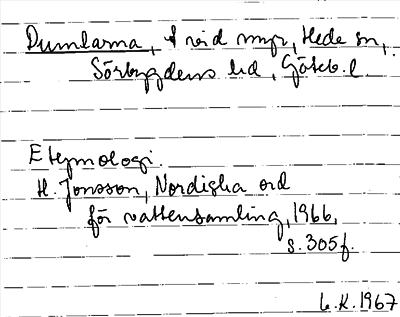 Dumlarna, f vid myr, Hede sn,
Sörbygdens hd, Göteb. l.
Etymologi.
H. Jonsson, Nordiska ord
för vattensamling, 1966,
s. 305 f.
L.K. 1967